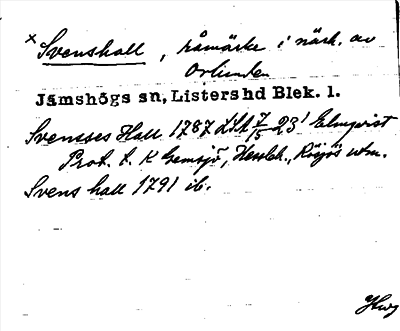 × Svenshall, råmärke i närh. av
Orlunden
Jämshögs sn, Listers hd Blek. l.
Svenses Hall 1787 LSA 7/5 23' Elmqvist
Prot. t. K Gemsjö, Hesslek., Rösjö utm.
Svens hall 1791 ib.
Hwg